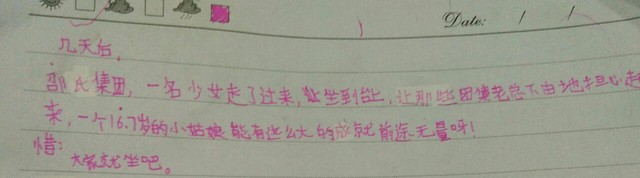 Date: / /
几天后，
邵氏集团，一名少女走了过来，让坐到台上，让那些团集老总不由地担心起
来，一个16.7岁的小姑娘能有这么大的成就前途无量呀！
惜：
大家就坐吧。